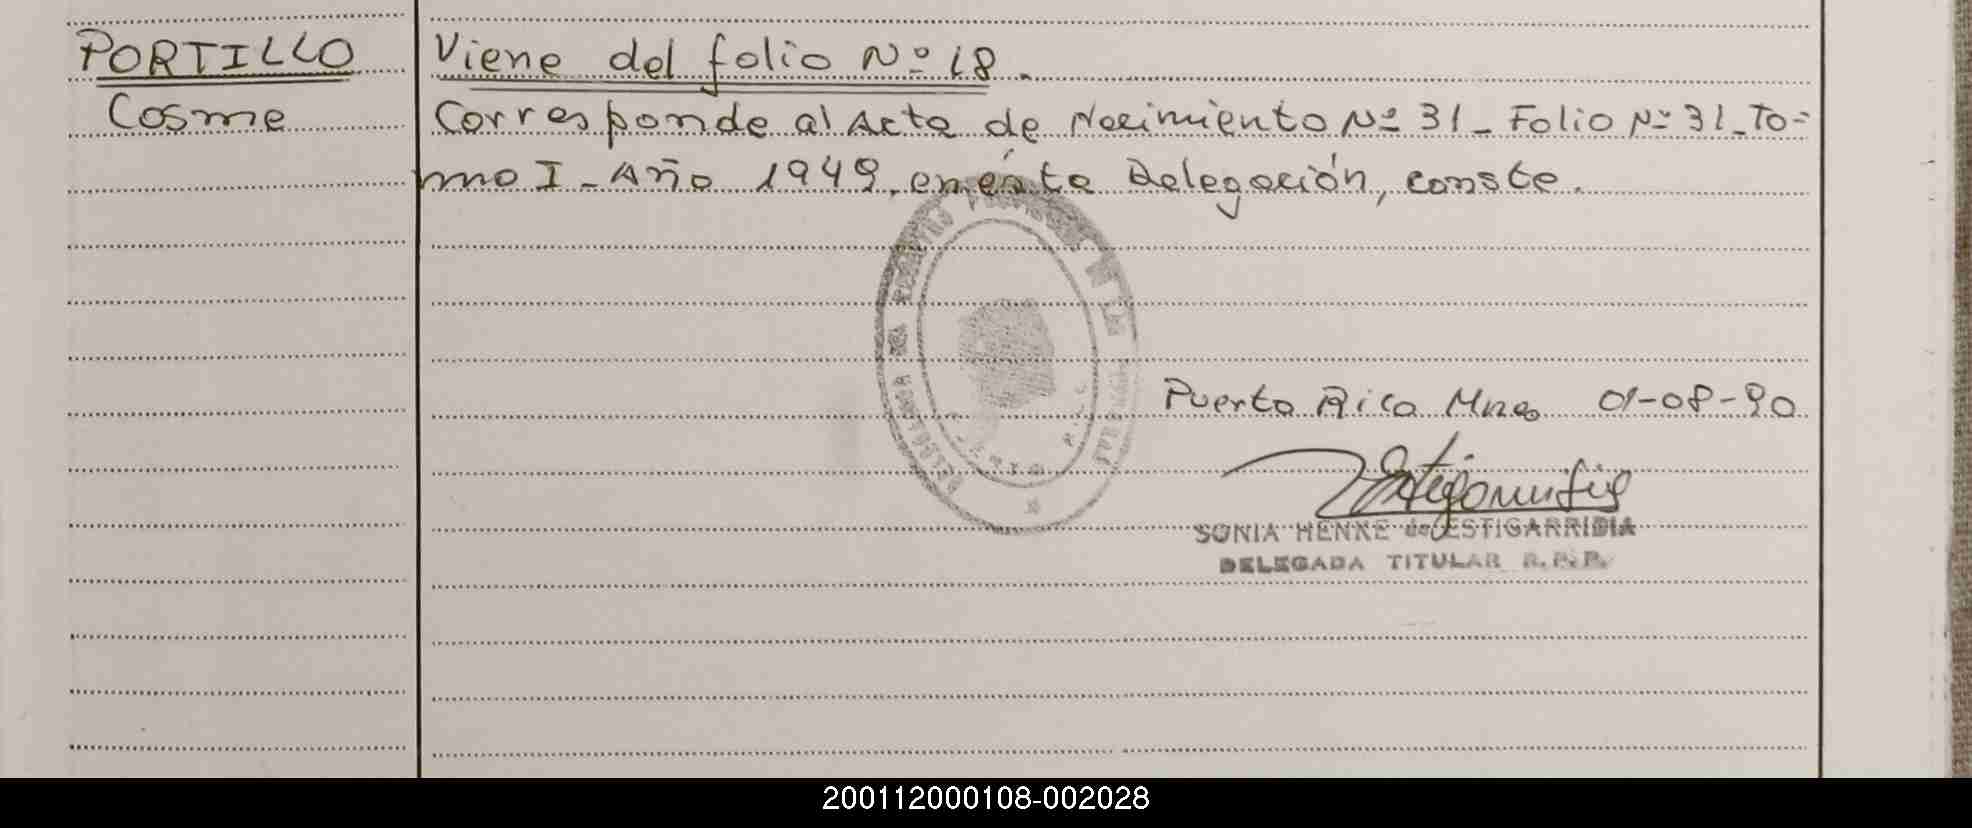 PORTILLO
Cosme
Viene del folio Nº 18.
Corresponde al Acta de Nacimiento Nº 31_ Folio Nº 31_To-
mo I_Año 1949, en ésta Delegación, conste.
Puerto Rico Mnes 01-08-90
SONIA HENKE de ESTIGARRIBIA
DELEGADA TITULAR R.P.P.
200112000108-002028